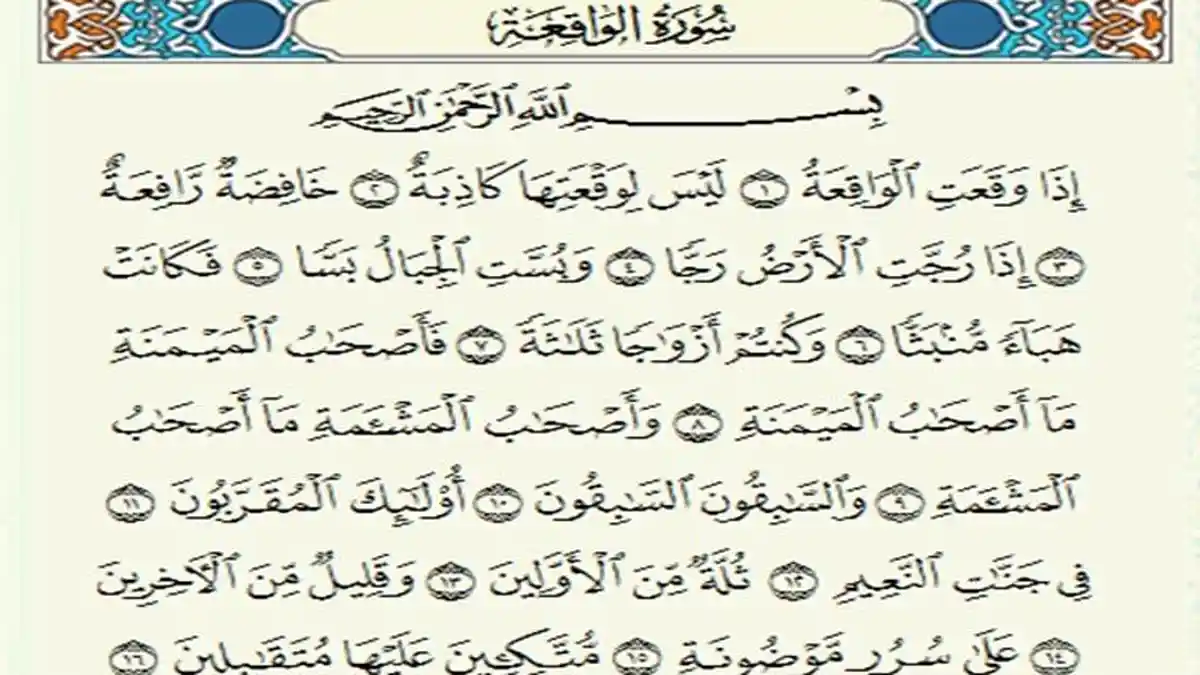 سُورَةُ الوَاقِعَةِ
بِسْمِ ٱللَّهِ ٱلرَّحْمَٰنِ ٱلرَّحِيمِ
إِذَا وَقَعَتِ ٱلْوَاقِعَةُ ١ لَيْسَ لِوَقْعَتِهَا كَاذِبَةٌ ٢ خَافِضَةٌ رَّافِعَةٌ
٣ إِذَا رُجَّتِ ٱلْأَرْضُ رَجًّا ٤ وَبُسَّتِ ٱلْجِبَالُ بَسًّا ٥ فَكَانَتْ
هَبَآءً مُّنۢبَثًّا ٦ وَكُنتُمْ أَزْوَاجًا ثَلَاثَةً ٧ فَأَصْحَابُ ٱلْمَيْمَنَةِ
مَآ أَصْحَابُ ٱلْمَيْمَنَةِ ٨ وَأَصْحَابُ ٱلْمَشْـَٔمَةِ مَآ أَصْحَابُ
ٱلْمَشْـَٔمَةِ ٩ وَٱلسَّابِقُونَ ٱلسَّابِقُونَ ١٠ أُو۟لَٰٓئِكَ ٱلْمُقَرَّبُونَ ١١
فِي جَنَّاتِ ٱلنَّعِيمِ ١٢ ثُلَّةٌ مِّنَ ٱلْأَوَّلِينَ ١٣ وَقَلِيلٌ مِّنَ ٱلْآخِرِينَ
١٤ عَلَىٰ سُرُرٍ مَّوْضُونَةٍ ١٥ مُّتَّكِـِٔينَ عَلَيْهَا مُتَقَابِلِينَ ١٦